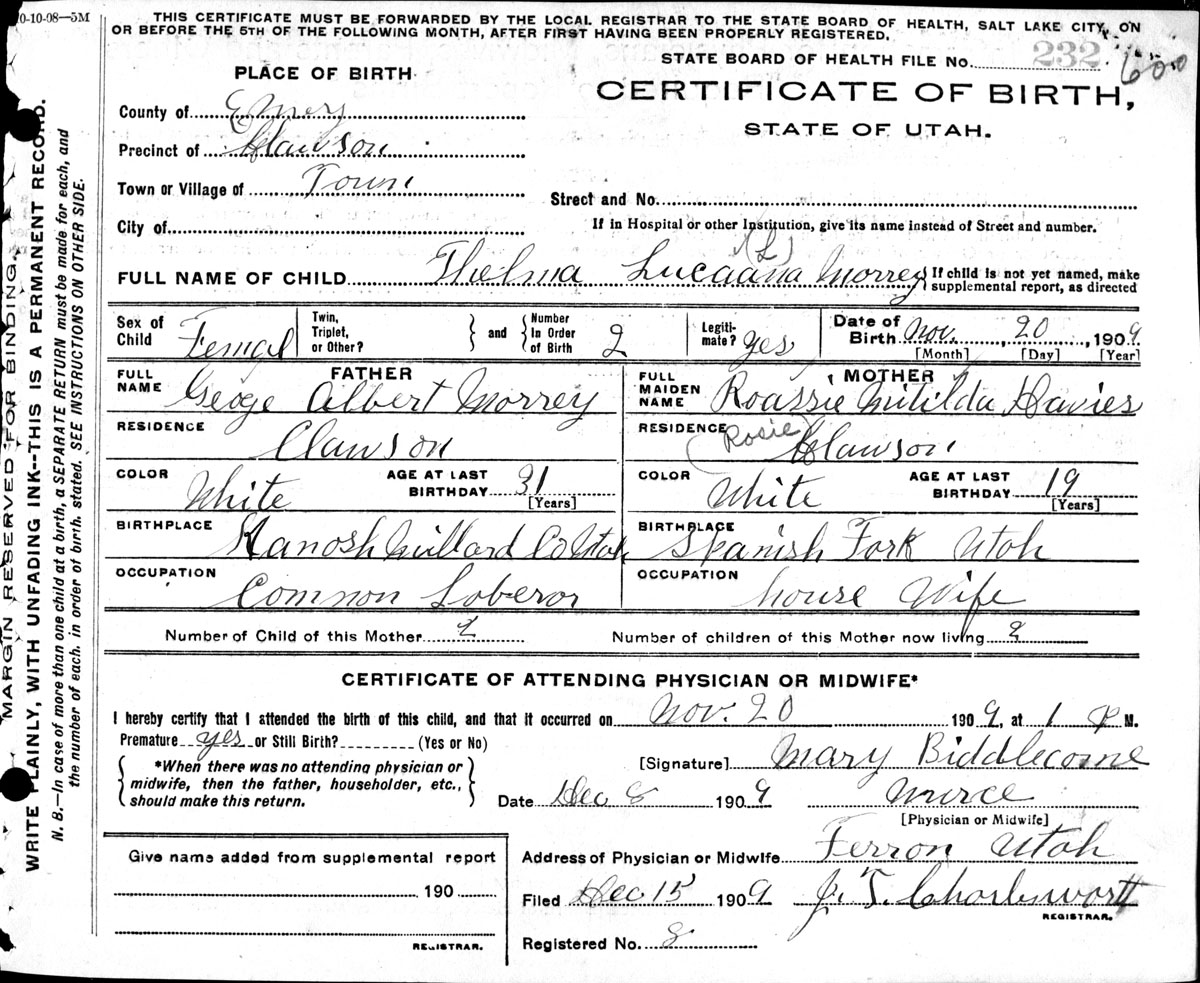 0-10-08—5M
THIS CERTIFICATE MUST BE FORWARDED BY THE LOCAL REGISTRAR TO THE STATE BOARD OF HEALTH, SALT LAKE CITY, ON
OR BEFORE THE 5TH OF THE FOLLOWING MONTH, AFTER FIRST HAVING BEEN PROPERLY REGISTERED.
STATE BOARD OF HEALTH FILE No. 232
600
PLACE OF BIRTH
CERTIFICATE OF BIRTH,
STATE OF UTAH.
County of Emery
Precinct of Clawson
Town or Village of Town
Street and No.
City of
If in Hospital or other Institution, give its name instead of Street and number.
(L)
FULL NAME OF CHILD Thelma Lucaana Morrey
If child is not yet named, make
supplemental report, as directed
Sex of Child Femal
Twin, Triplet, or Other?
and
Number In Order of Birth 2
Legiti-mate? yes
Date of Birth Nov. 20, 1909
[Month] [Day] [Year]
FATHER
FULL NAME Geoge Albert Morrey
MOTHER
FULL MAIDEN NAME Roassie Mitilda Davies
(Rosie)
RESIDENCE Clawson
RESIDENCE Clawson
COLOR White
AGE AT LAST BIRTHDAY 31
[Years]
COLOR White
AGE AT LAST BIRTHDAY 19
[Years]
BIRTHPLACE Kanosh Millard Co Utah
BIRTHPLACE Spanish Fork Utah
OCCUPATION Common Loberor
OCCUPATION house Wife
Number of Child of this Mother 2
Number of children of this Mother now living 2
CERTIFICATE OF ATTENDING PHYSICIAN OR MIDWIFE*
I hereby certify that I attended the birth of this child, and that it occurred on Nov. 20 1909, at 1 P M.
Premature yes or Still Birth? (Yes or No)
*When there was no attending physician or
midwife, then the father, householder, etc.,
should make this return.
[Signature] Mary Biddlecome
Date Dec 8 1909 nurce
[Physician or Midwife]
Give name added from supplemental report
190
REGISTRAR.
Address of Physician or Midwife Ferron Utah
Filed Dec 15 1909 J. T. Charlsworth
REGISTRAR.
Registered No. 8
MARGIN RESERVED FOR BINDING.
WRITE PLAINLY, WITH UNFADING INK--THIS IS A PERMANENT RECORD.
N. B.—In case of more than one child at a birth, a SEPARATE RETURN must be made for each, and
the number of each, in order of birth, stated. SEE INSTRUCTIONS ON OTHER SIDE.